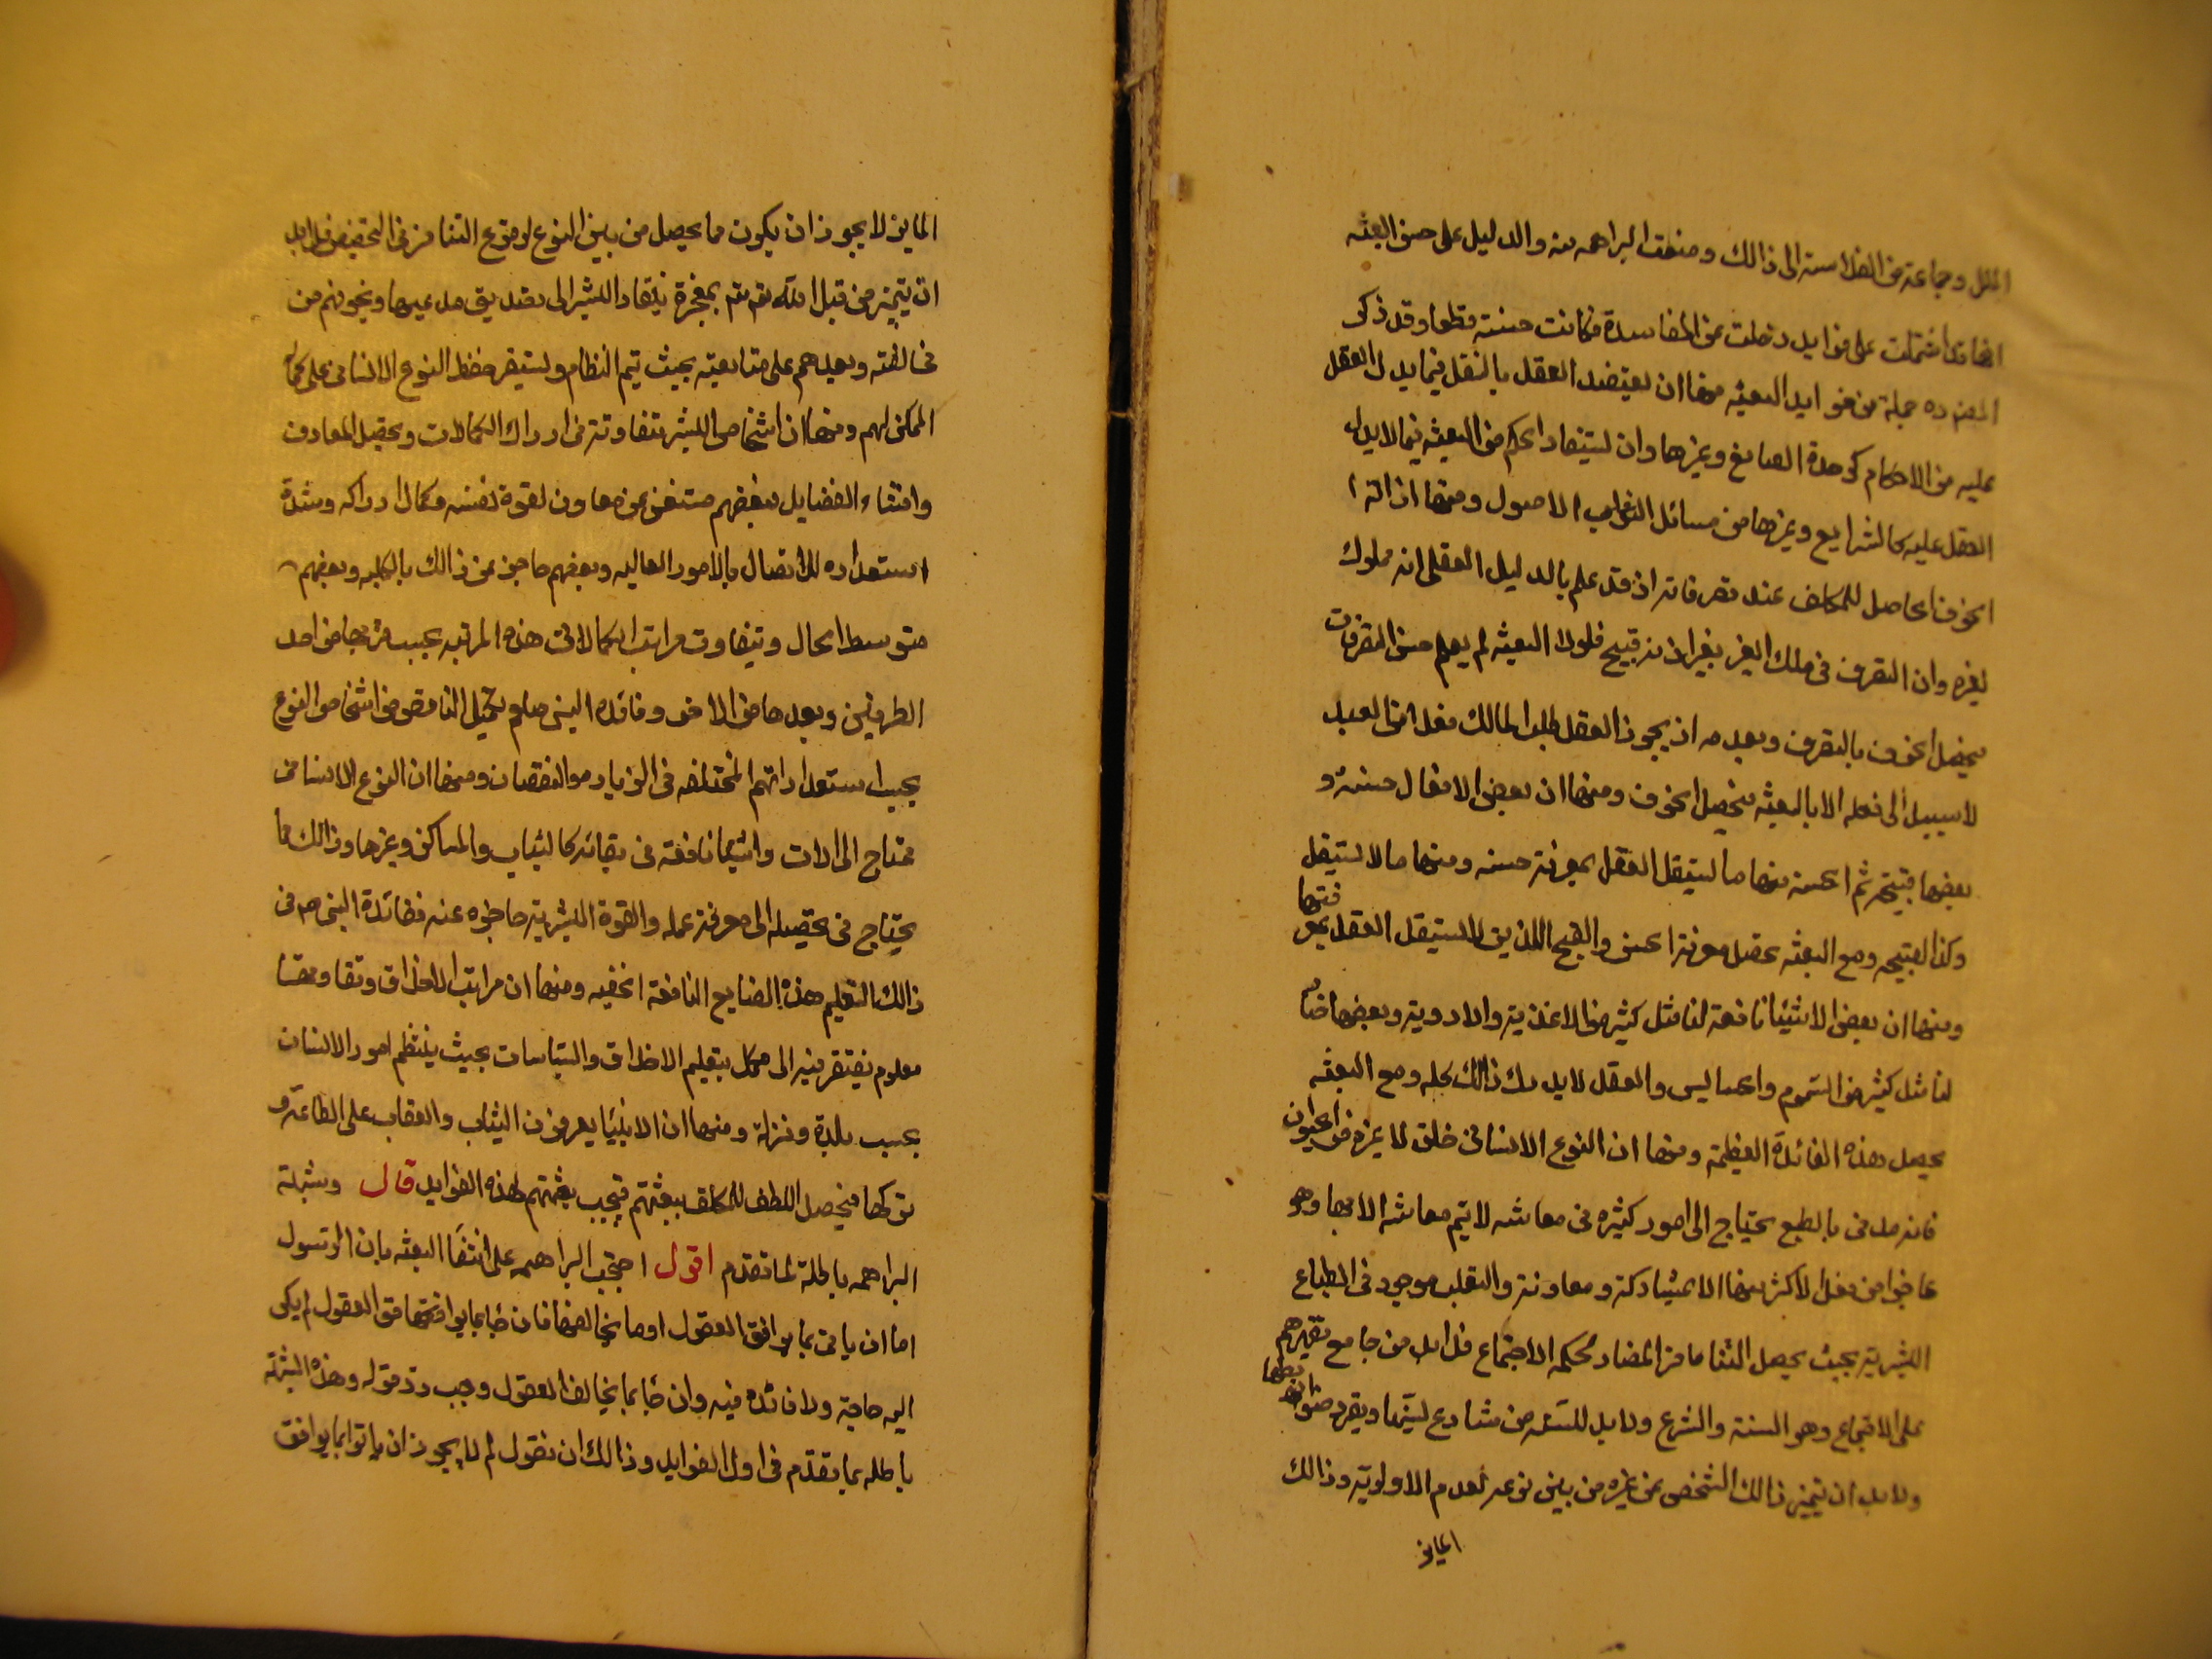 الملل وجماعة من الفلاسفة الى ذالك ومنعت البراهمه منه والدليل على حسن البعثه
انها قد اشتملت على فوايد وخلت عن المفاسدة فكانت حسنة قطعا وقد ذكر
المص ره جملة من فوايد البعثه منها ان يعتضد العقل بالنقل فيما يدل العقل
عليه من الاحكام كوحدة الصانع وغيرها وان يستفاد الحكم من البعثه فيما لا يدل
العقل عليه كالشرايع وغيرها من مسائل الاصول ومنها ازالة
الخوف الحاصل للمكلف عند تصرفاته اذ قد علم بالدليل العقلى انه مملوك
لغيره وان التصرف فى ملك الغير بغير اذنه قبيح فلولا البعثه لم يعلم حسن التصرفات
فيحصل الخوف بالتصرف وبعدمه اذ يجوز العقل طلب المالك فعلا من العبد
لا سبيل الى فعله الا بالبعثه فيحصل الخوف ومنها ان بعض الافعال حسنة و
بعضها قبيحة ثم الحسنة منها ما يستقل العقل بمعرفة حسنه ومنها ما لا يستقل
وكذا القبيحه ومع البعثه يحصل معرفة الحسن والقبح اللذين لا يستقل العقل بمعرفتها
ومنها ان بعض الاشيئا نافعة لنا مثل كثير من الاغذية والادوية وبعضها ضار
لنا مثل كثير من السموم والحسايس والعقل لا يدرك ذالك كله ومع البعثه
يحصل هذه الفائدة العظيمة ومنها ان النوع الانسانى خلق لا كغيره من الحيوان
فانه مدنى بالطبع يحتاج الى امور كثيره فى معاشه لا يتم معاشه الا بها وهو
عاجز من فعل الاكثر منها الا بمشاركة ومعاونة والتغلب موجود فى الطباع
البشرية بحيث يحصل التنافر المضاد لحكمه الاجتماع فلا بد من جامع يقهرهم
على الاجتماع وهو السنة والشرع ولا بد للسنه من شارع يسنها ويقرر ضوابطها
ولا بد ان يتميز ذالك الشخص عن غيره من بين نوعه لعدم الاولوية وذالك
المايز
المايز لا يجوز ان يكون مما يحصل من بين النوع لوقوع التنافر فى التخصيص فلا بد
ان يتميز من قبل الله تع بمعجزة ينقاد البشر الى تصديق مدعيها ويخوفهم من
مخالفته ويعدهم على متابعته بحيث يتم النظام ويستقر حفظ النوع الانسانى على كماله
الممكن لهم ومنها ان اشخاص البشر متفاوتة فى ادراك الكمالات وتحصيل المعارف
واقتناء الفضايل فبعضهم مستغن عن معاون لقوة نفسه وكمال ادراكه وشدة
استعداده للاتصال بالامور العاليه وبعضهم عاجز عن ذالك بالكليه وبعضهم
متوسط الحال وتتفاوت مراتب الكمال فى هذه المرتبه بحسب قربها من احد
الطرفين وبعدها من الاخر وفائده النبى صلعم تكميل الناقص من اشخاص النوع
بحسب استعداداتهم المختلفه فى الزياده والنقصان ومنها ان النوع الانسانى
محتاج الى الات واشيئا نافعة فى بقائه كالثياب والمساكن وغيرها وذالك مما
يحتاج فى تحصيله الى معرفة عمله والقوة البشرية عاجزه عنه ففائدة النبى ص فى
ذالك التعليم هذه الصنايع النافعة الخفيه ومنها ان مراتب الاخلاق وتفاوتها
معلوم يفتقر فيه الى مكمل بتعليم الاخلاق والسياسات بحيث ينتظم امور الانسان
بحسب بلدة ومنزله ومنها ان الانبيئا يعرفون الثواب والعقاب على الطاعة و
تركها فيحصل اللطف للمكلف ببعثتهم فيجب بعثتهم لهذه الفوايد قال وشبهة
البراهمه باطلة لما تقدم اقول احتجت البراهمه على انتفا البعثه بان الرسول
اما ان ياتى بما يوافق العقول او ما يخالفها فان جا بما يوافقها فى العقول لم يكن
اليه حاجة ولا فائده فيه وان جا بما يخالف العقول وجب رد قوله وهذه الشبهة
باطله بما تقدم فى اول الفوايد وذالك ان نقول لم لا يجوز ان ياتوا بما يوافق